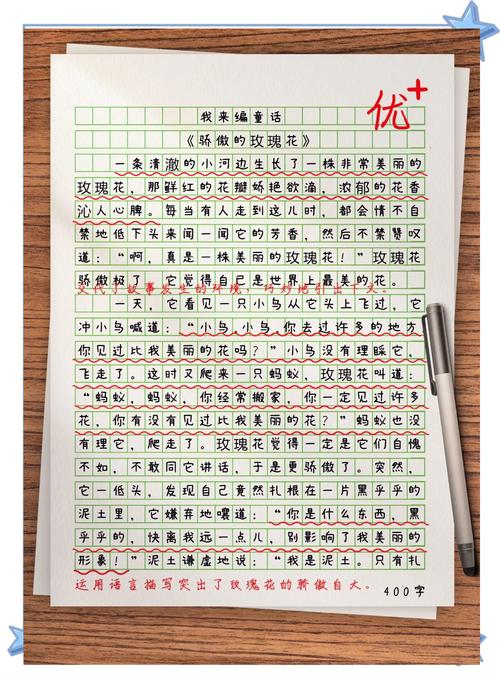 优+
我来编童话
《骄傲的玫瑰花》
一条清澈的小河边生长了一株非常美丽的
玫瑰花，那鲜红的花瓣娇艳欲滴，浓郁的花香
沁人心脾。每当有人走到这儿时，都会情不自
禁地低下头来闻一闻它的芳香，然后不禁赞叹
道：“啊，真是一株美丽的玫瑰花！”玫瑰花
骄傲极了，它觉得自己是世界上最美的花。
交代了故事发生的环境，巧妙地引出下文。
一天，它看见一只小鸟从它头上飞过，它
冲小鸟喊道：“小鸟，小鸟，你去过许多的地方，
你见过比我美丽的花吗？”小鸟没有理睬它，
飞走了。这时又爬来一只蚂蚁，玫瑰花叫道：
“蚂蚁，蚂蚁，你经常搬家，你一定见过许多
花，你有没有见过比我美丽的花？”蚂蚁也没
有理它，爬走了。玫瑰花觉得一定是它们自愧
不如，不敢同它讲话，于是更骄傲了。突然，
它一低头，发现自己竟然扎根在一片黑乎乎的
泥土里，它嫌弃地嚷道：“你是什么东西，黑
乎乎的，快离我远一点儿，别影响了我美丽的
形象！”泥土谦虚地说：“我是泥土。只有扎
运用语言描写突出了玫瑰花的骄傲自大。
400字